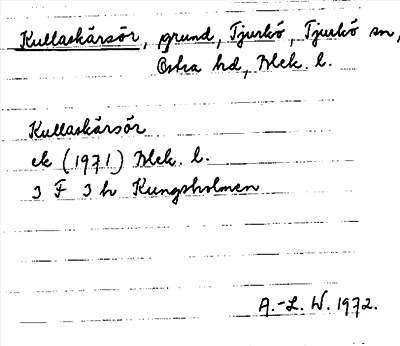 Kullaskärsör, grund, Tjurkö, Tjurkö sn,
Östra hd, Blek. l.
Kullaskärsör
ek (1971) Blek. l.
3 F 3 h Kungsholmen
A.-L. W. 1972.